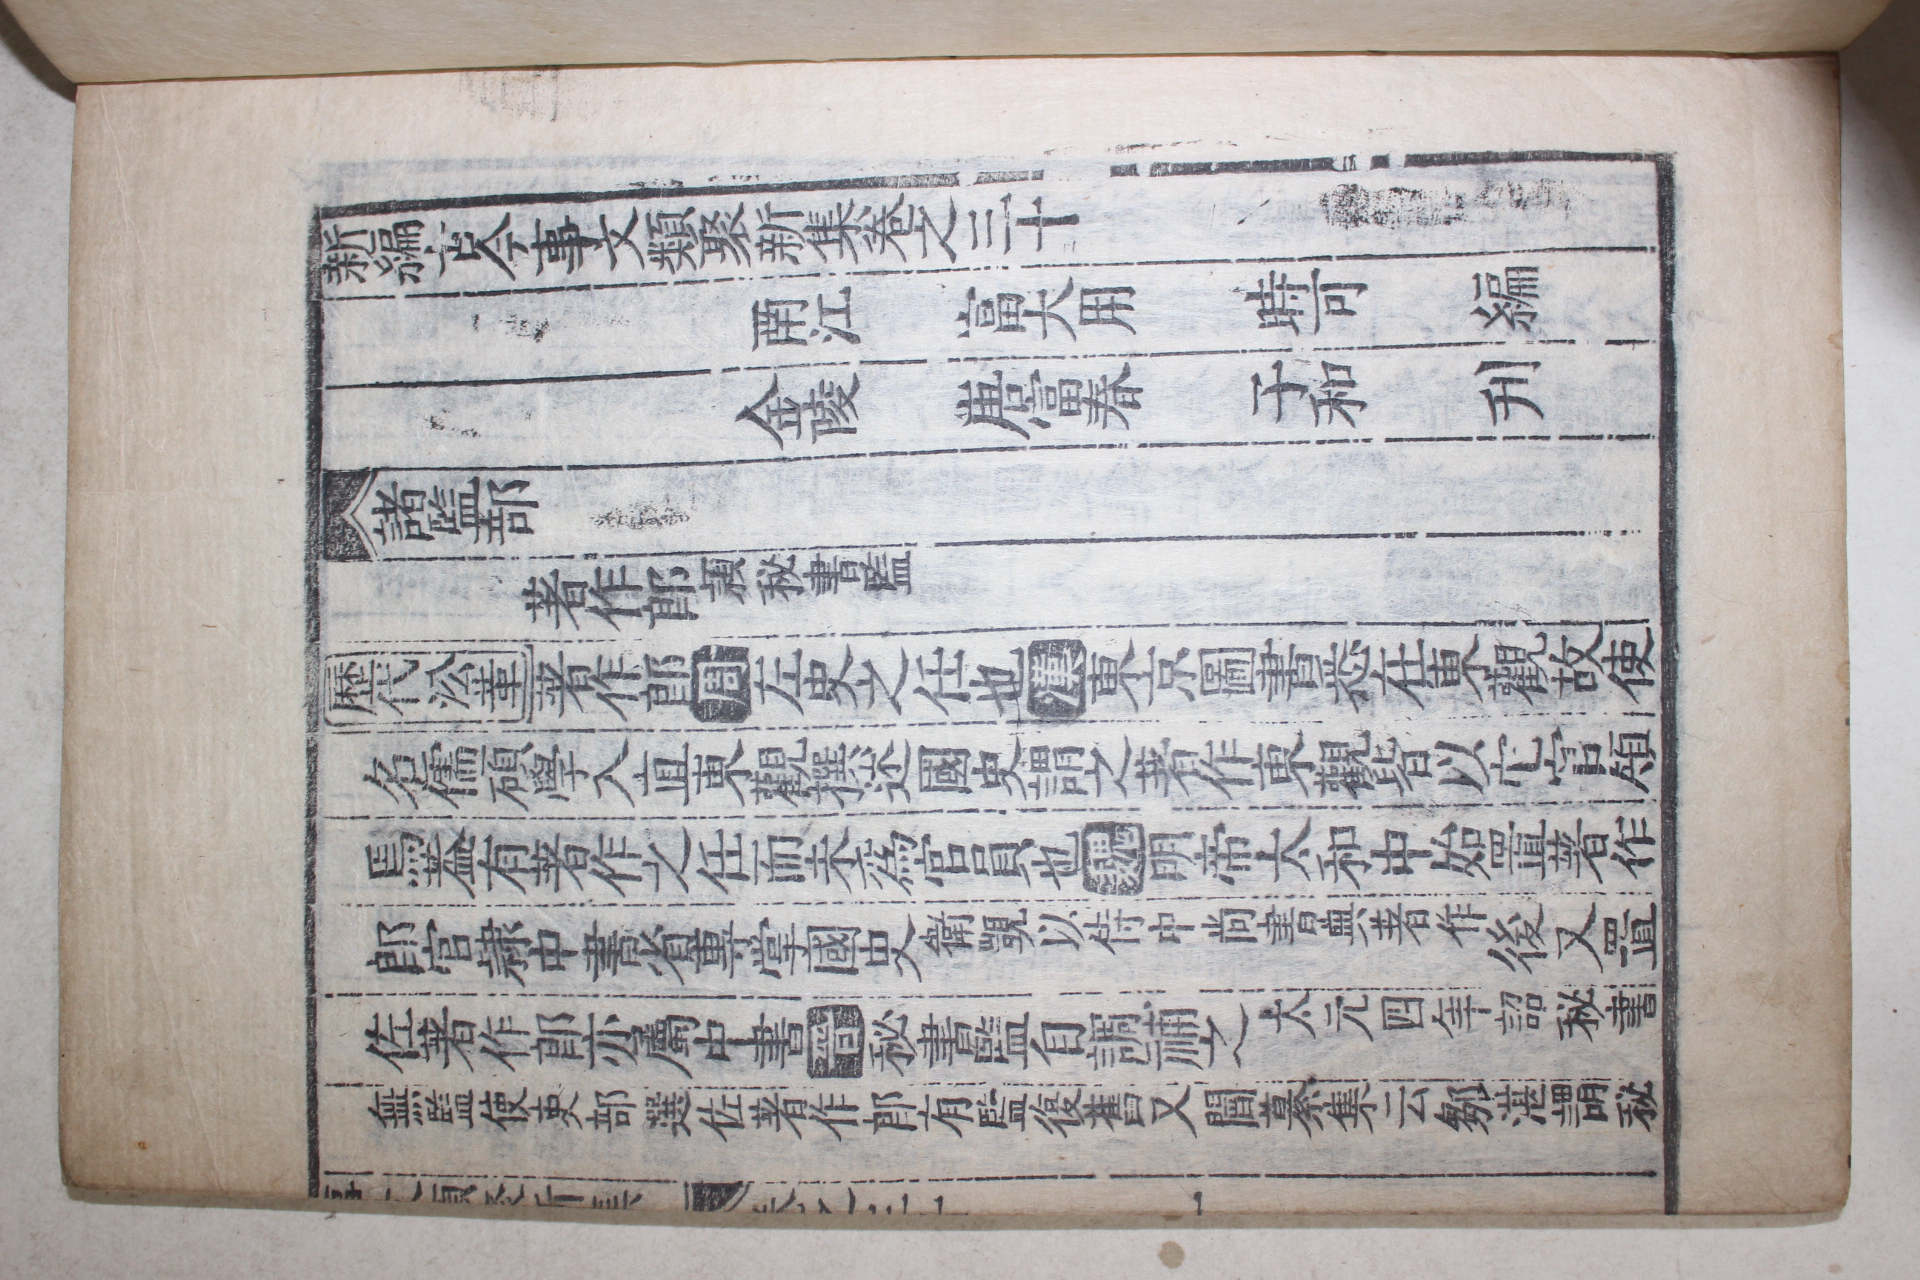 新編古今事文類聚新集卷之三十
南江 富大用 時可 編
金陵 唐富春 子和 刋
諸監部
著作郎 秘書監
歷代沿革 著作郎 周 左史之任也 漢 東京圖書悉在東觀故使
名儒碩學入直東觀撰述國史謂之著作東觀皆以它官領
焉蓋有著作之任而未爲官員也 魏 明帝太和中始置著作
郎官隸中書省專掌國史 衛覬以侍中尚書典著作 後又置
佐著作郎亦屬中書 晉 秘書監自調補之 太元四年詔秘書
無監使吏部選佐著作郎有監復舊又閻纂集云鄒湛謂秘
卷之三十
一